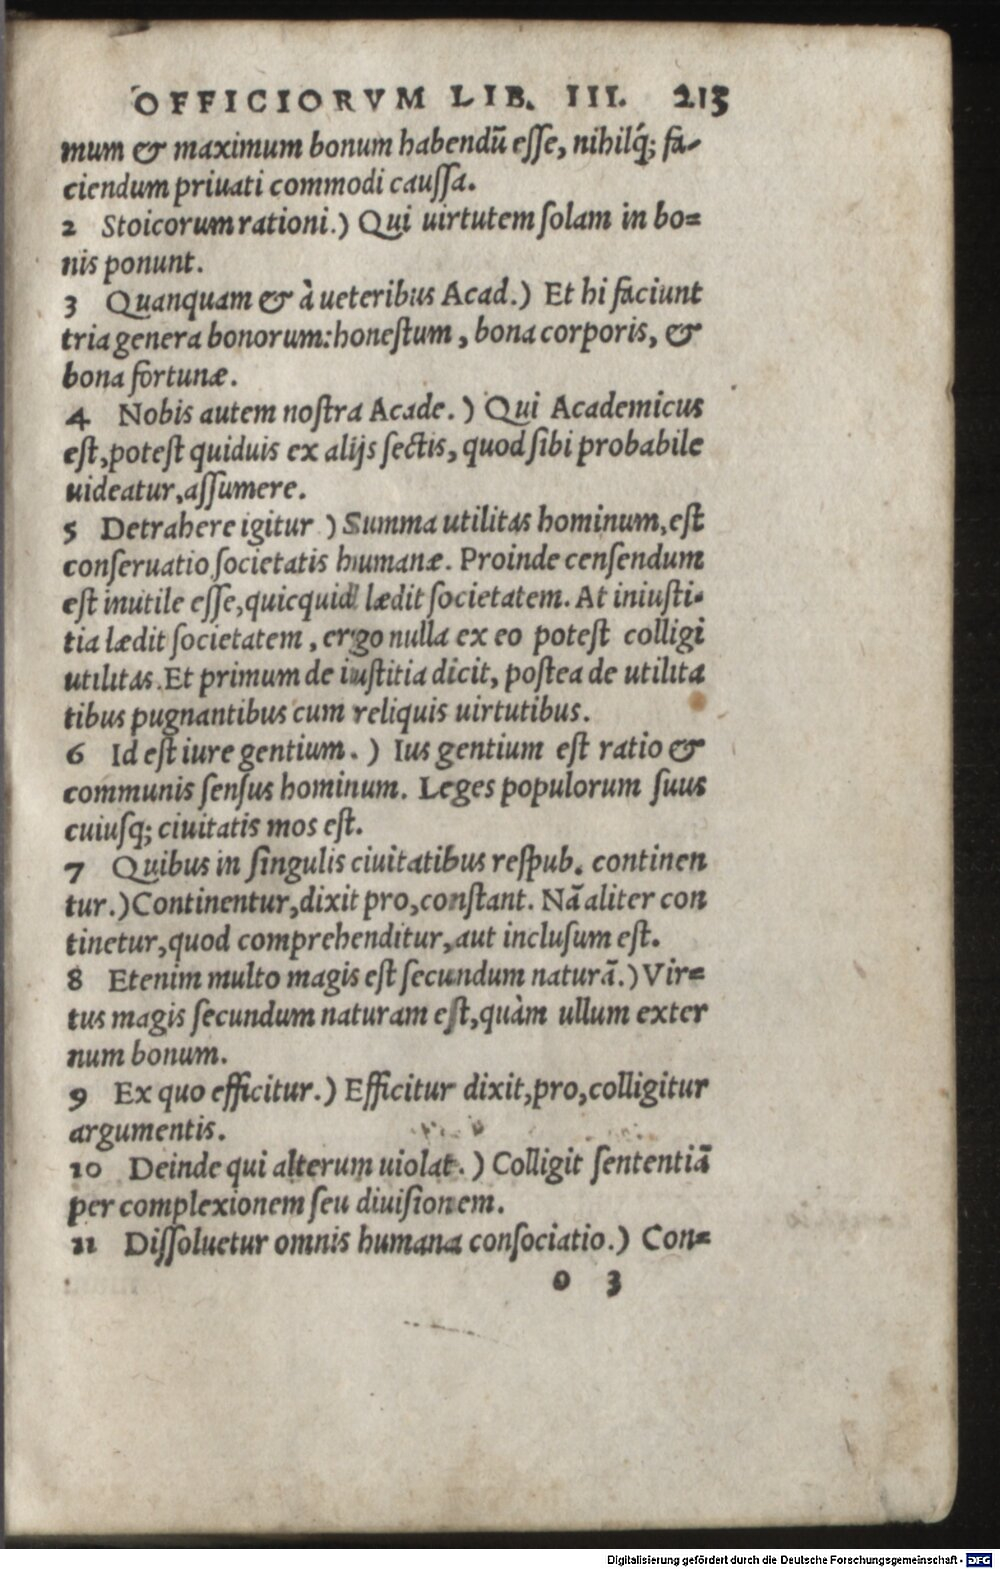 OFFICIORVM LIB. III. 213
mum & maximum bonum habendũ esse, nihilq́; fa-
ciendum priuati commodi caussa.
2 Stoicorum rationi.) Qui uirtutem solam in bo=
nis ponunt.
3 Quanquam & à ueteribus Acad.) Et hi faciunt
tria genera bonorum: honestum, bona corporis, &
bona fortunæ.
4 Nobis autem nostra Acade.) Qui Academicus
est, potest quiduis ex alijs sectis, quod sibi probabile
uideatur, assumere.
5 Detrahere igitur ) Summa utilitas hominum, est
conseruatio societatis humanæ. Proinde censendum
est inutile esse, quicquid lædit societatem. At iniusti-
tia lædit societatem, ergo nulla ex eo potest colligi
utilitas. Et primum de iustitia dicit, postea de utilita
tibus pugnantibus cum reliquis uirtutibus.
6 Id est iure gentium.) Ius gentium est ratio &
communis sensus hominum. Leges populorum suus
cuiusq; ciuitatis mos est.
7 Quibus in singulis ciuitatibus respub. continen
tur.) Continentur, dixit pro, constant. Nã aliter con
tinetur, quod comprehenditur, aut inclusum est.
8 Etenim multo magis est secundum naturã.) Vir=
tus magis secundum naturam est, quàm ullum exter
num bonum.
9 Ex quo efficitur.) Efficitur dixit, pro, colligitur
argumentis.
10 Deinde qui alterum uiolat.) Colligit sententiã
per complexionem seu diuisionem.
11 Dissoluetur omnis humana consociatio.) Con=
o 3
Digitalisierung gefördert durch die Deutsche Forschungsgemeinschaft - DFG